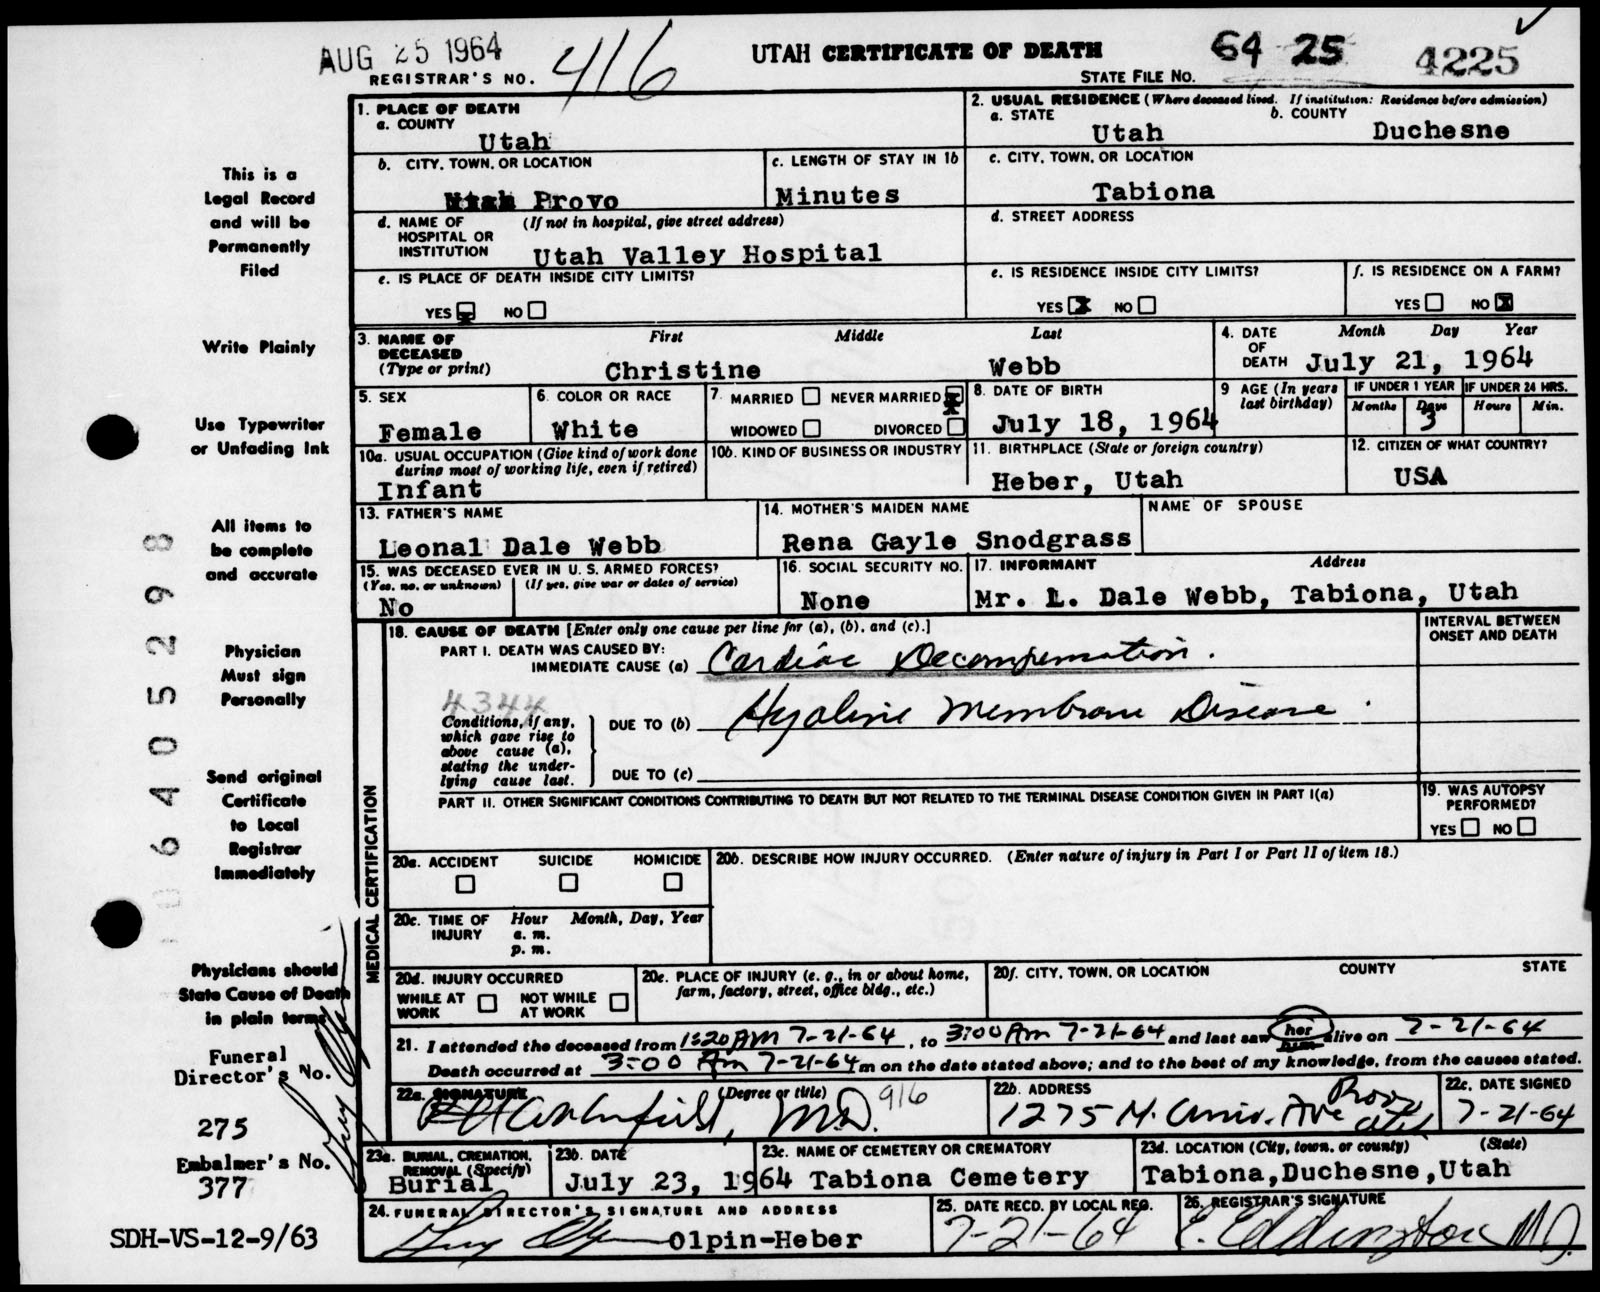 AUG 25 1964
REGISTRAR'S NO. 416
UTAH CERTIFICATE OF DEATH
STATE FILE NO. 64 25 4225
This is a
Legal Record
and will be
Permanently
Filed
Write Plainly
Use Typewriter
or Unfading Ink
All items to
be complete
and accurate
Physician
Must sign
Personally
Send original
Certificate
to Local
Registrar
Immediately
Physicians should
State Cause of Death
in plain terms
Funeral
Director's No.
275
Embalmer's No.
377
SDH-VS-12-9/63
06405298
1. PLACE OF DEATH
a. COUNTY
Utah
2. USUAL RESIDENCE (Where deceased lived. If institution: Residence before admission)
a. STATE
Utah
b. COUNTY
Duchesne
b. CITY, TOWN, OR LOCATION
Provo
c. LENGTH OF STAY IN 1b
Minutes
c. CITY, TOWN, OR LOCATION
Tabiona
d. NAME OF HOSPITAL OR INSTITUTION (If not in hospital, give street address)
Utah Valley Hospital
d. STREET ADDRESS
e. IS PLACE OF DEATH INSIDE CITY LIMITS?
YES NO
e. IS RESIDENCE INSIDE CITY LIMITS?
YES X NO
f. IS RESIDENCE ON A FARM?
YES NO X
3. NAME OF DECEASED (Type or print)
First Middle Last
Christine Webb
4. DATE OF DEATH
Month Day Year
July 21, 1964
5. SEX
Female
6. COLOR OR RACE
White
7. MARRIED NEVER MARRIED X
WIDOWED DIVORCED
8. DATE OF BIRTH
July 18, 1964
9 AGE (In years last birthday)
IF UNDER 1 YEAR IF UNDER 24 HRS.
Months Days Hours Min.
3
10a. USUAL OCCUPATION (Give kind of work done during most of working life, even if retired)
Infant
10b. KIND OF BUSINESS OR INDUSTRY
11. BIRTHPLACE (State or foreign country)
Heber, Utah
12. CITIZEN OF WHAT COUNTRY?
USA
13. FATHER'S NAME
Leonal Dale Webb
14. MOTHER'S MAIDEN NAME
Rena Gayle Snodgrass
NAME OF SPOUSE
15. WAS DECEASED EVER IN U. S. ARMED FORCES?
(Yes, no, or unknown) (If yes, give war or dates of service)
No
16. SOCIAL SECURITY NO.
None
17. INFORMANT Address
Mr. L. Dale Webb, Tabiona, Utah
MEDICAL CERTIFICATION
18. CAUSE OF DEATH [Enter only one cause per line for (a), (b), and (c).]
INTERVAL BETWEEN ONSET AND DEATH
PART I. DEATH WAS CAUSED BY:
IMMEDIATE CAUSE (a) Cardiac Decompensation.
4344
Conditions, if any, which gave rise to above cause (a), stating the underlying cause last.
DUE TO (b) Hyaline Membrane Disease.
DUE TO (c)
PART II. OTHER SIGNIFICANT CONDITIONS CONTRIBUTING TO DEATH BUT NOT RELATED TO THE TERMINAL DISEASE CONDITION GIVEN IN PART I(a)
19. WAS AUTOPSY PERFORMED?
YES NO
20a. ACCIDENT SUICIDE HOMICIDE
20b. DESCRIBE HOW INJURY OCCURRED. (Enter nature of injury in Part I or Part II of item 18.)
20c. TIME OF INJURY
Hour Month, Day, Year
a. m.
p. m.
20d. INJURY OCCURRED
WHILE AT WORK NOT WHILE AT WORK
20e. PLACE OF INJURY (e. g., in or about home, farm, factory, street, office bldg., etc.)
20f. CITY, TOWN, OR LOCATION COUNTY STATE
21. I attended the deceased from 1:20 AM 7-21-64, to 3:00 Am 7-21-64 and last saw her him alive on 7-21-64
Death occurred at 3:00 Am 7-21-64 m on the date stated above; and to the best of my knowledge, from the causes stated.
22a. SIGNATURE (Degree or title)
M.D. 916
22b. ADDRESS
1275 N. Univ. Ave Provo Utah
22c. DATE SIGNED
7-21-64
23a. BURIAL, CREMATION, REMOVAL (Specify)
Burial
23b. DATE
July 23, 1964
23c. NAME OF CEMETERY OR CREMATORY
Tabiona Cemetery
23d. LOCATION (City, town, or county) (State)
Tabiona, Duchesne, Utah
24. FUNERAL DIRECTOR'S SIGNATURE AND ADDRESS
Guy Olpin Olpin-Heber
25. DATE RECD. BY LOCAL REG.
7-21-64
26. REGISTRAR'S SIGNATURE
E. Eddington MD.